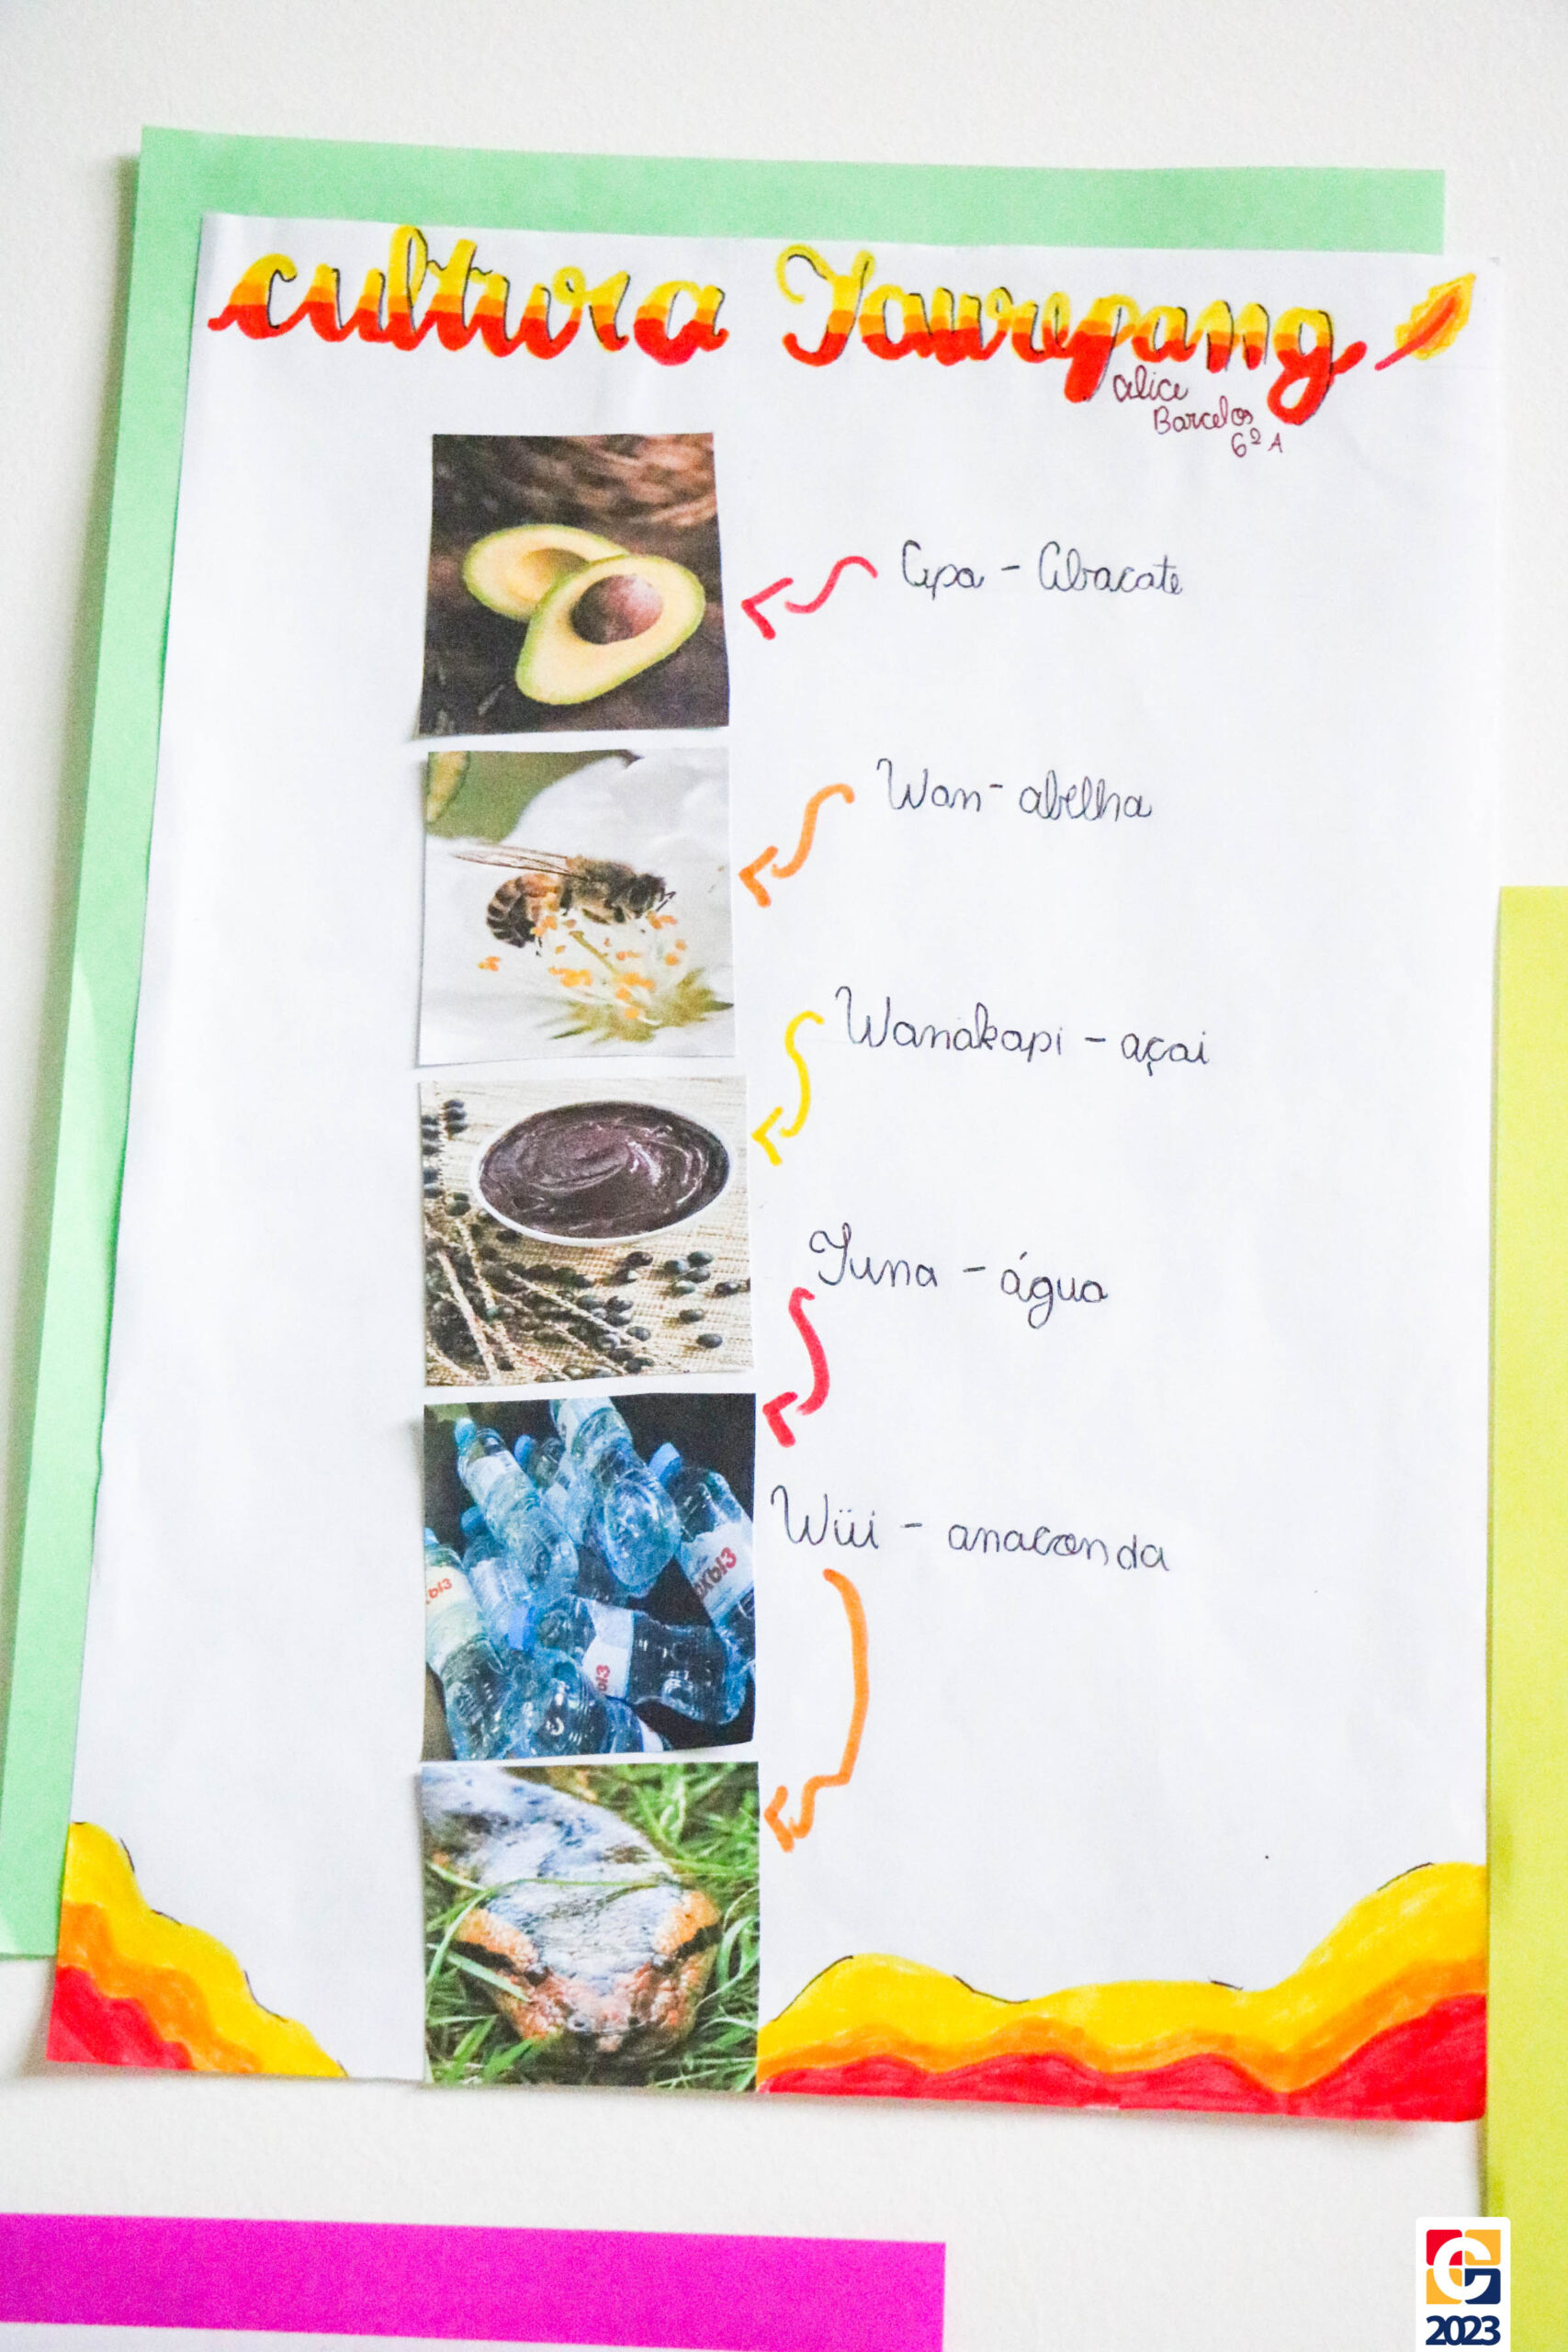 cultura Taurepang
Alice
Barcelos
6º A
Apa - Abacate
Wan - abelha
Wanakapi - açai
Tuna - água
Wüi - anaconda
2023